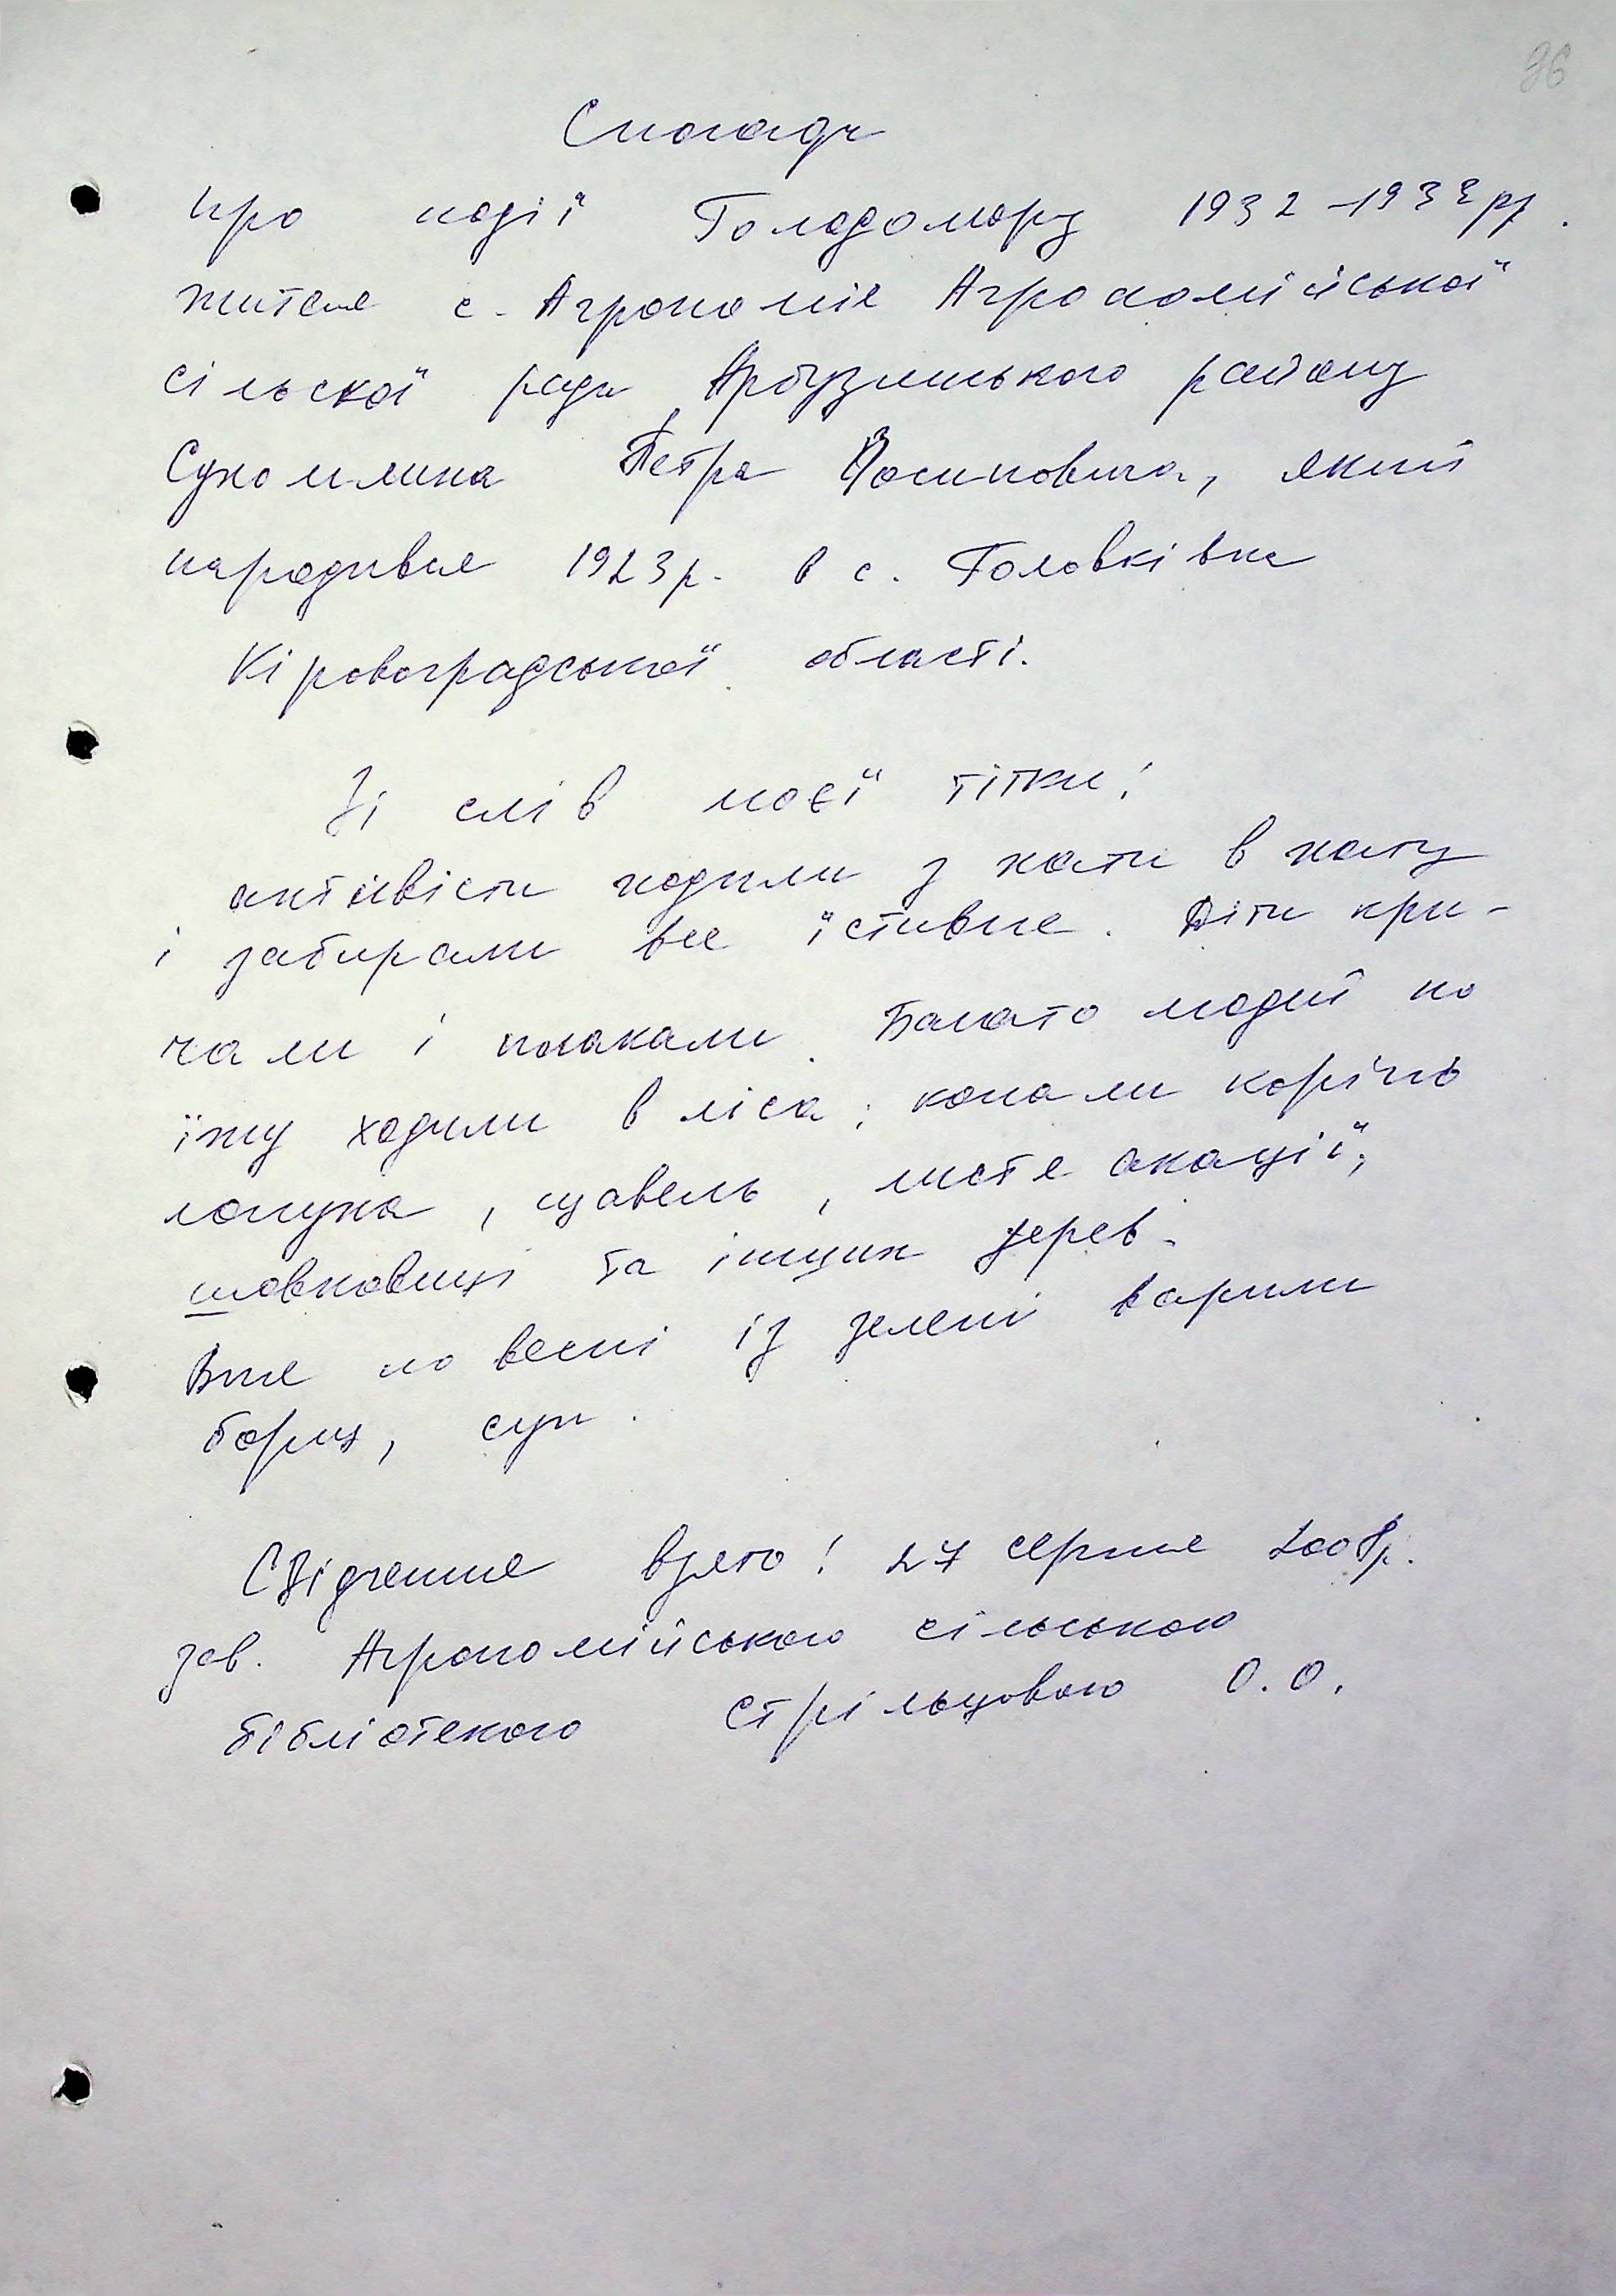 96
Спогади
про події Голодомору 1932-1933рр.
жителя с. Агрономія Агрономійської
сільскої ради Арбузинського району
Сухомлина Петра Йосиповича, який
народився 1923р. в с. Головківка
Кіровоградської області.
Зі слів моєї тітки:
активісти ходили з хати в хату
і забирали все їстивне. Діти кри-
чали і плакали. Багато людей по
їжу ходили в ліса; копали корінь
лопуха, щавель, листя акації,
шовковиці та інших дерев.
Вже по весні із зелені варили
борщ, суп.
Свідчення взято: 27 серпня 2008р.
зав. Агрономійською сільською
бібліотекою Стрільцовою О.О.